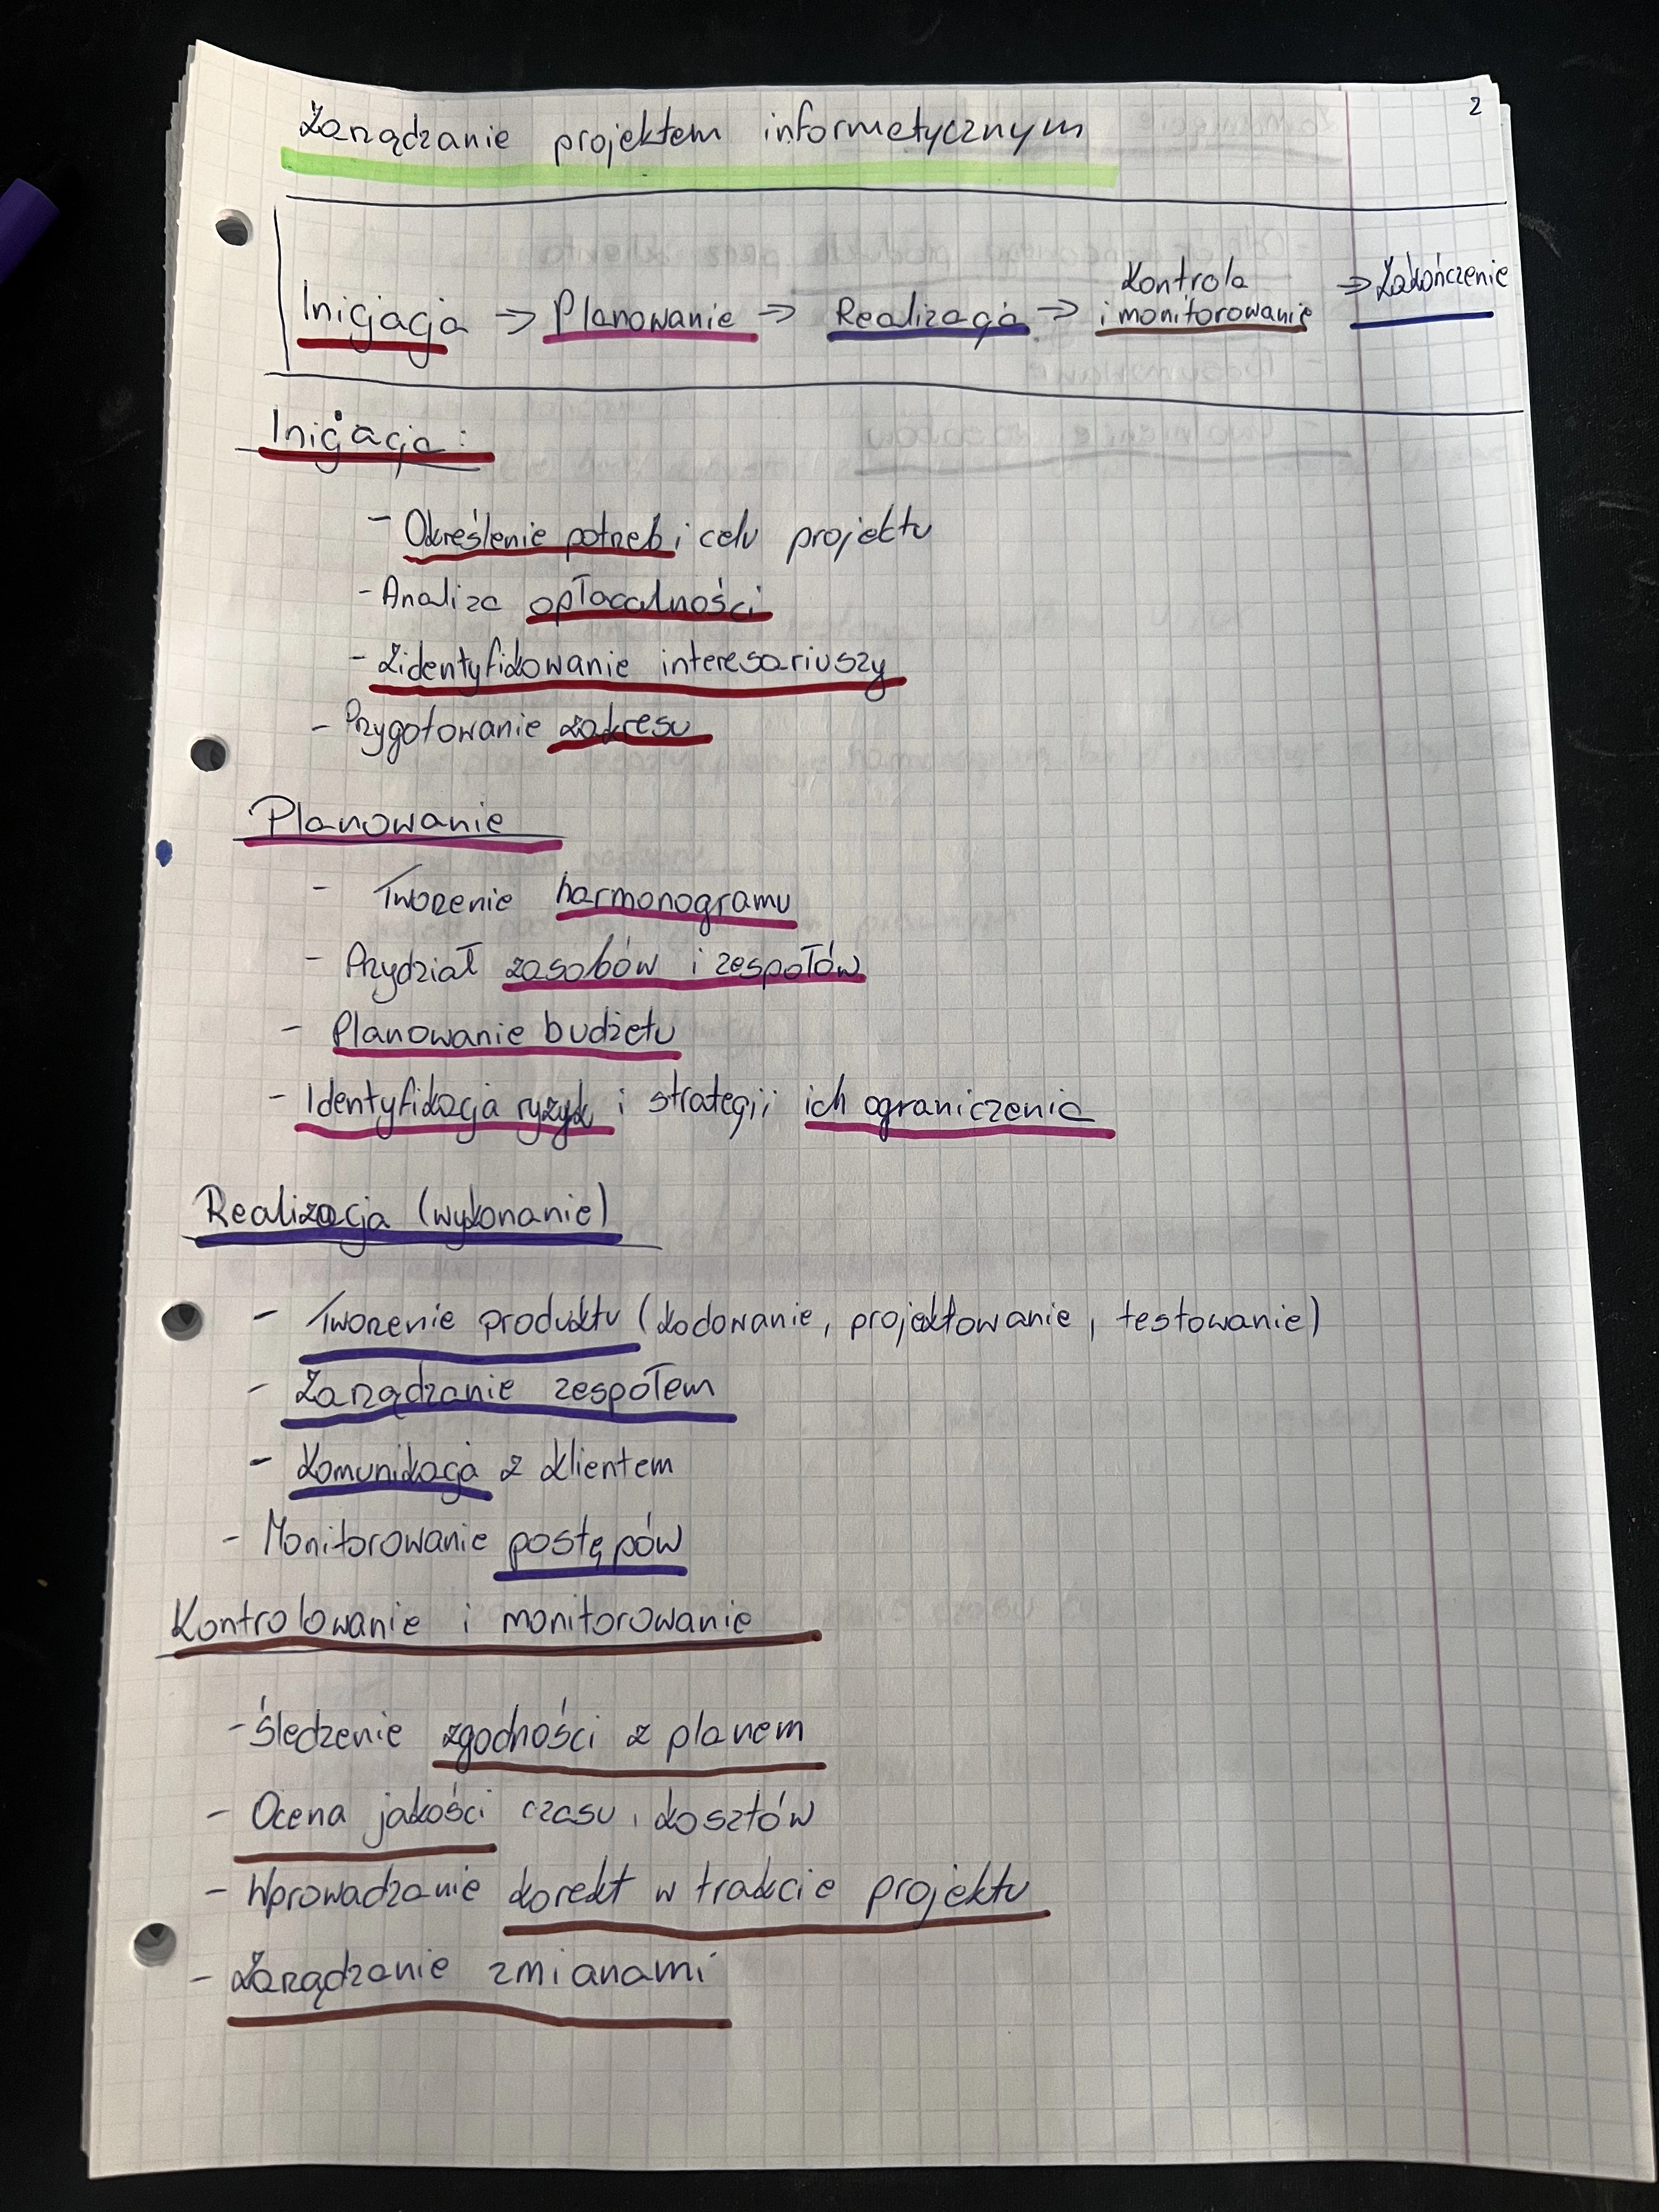 2
Zarządzanie projektem informatycznym
Kontrola
Inicjacja → Planowanie → Realizacja → i monitorowanie → Zakończenie
Inicjacja:
- Określenie potrzeb i celu projektu
- Analiza opłacalności
- Zidentyfikowanie interesariuszy
- Przygotowanie zakresu
Planowanie
- Tworzenie harmonogramu
- Przydział zasobów i zespołów
- Planowanie budżetu
- Identyfikacja ryzyk i strategii ich ograniczenia
Realizacja (wykonanie)
- Tworzenie produktu (kodowanie, projektowanie, testowanie)
- Zarządzanie zespołem
- Komunikacja z klientem
- Monitorowanie postępów
Kontrolowanie i monitorowanie
- Śledzenie zgodności z planem
- Ocena jakości czasu, kosztów
- Wprowadzanie korekt w trakcie projektu
- Zarządzanie zmianami